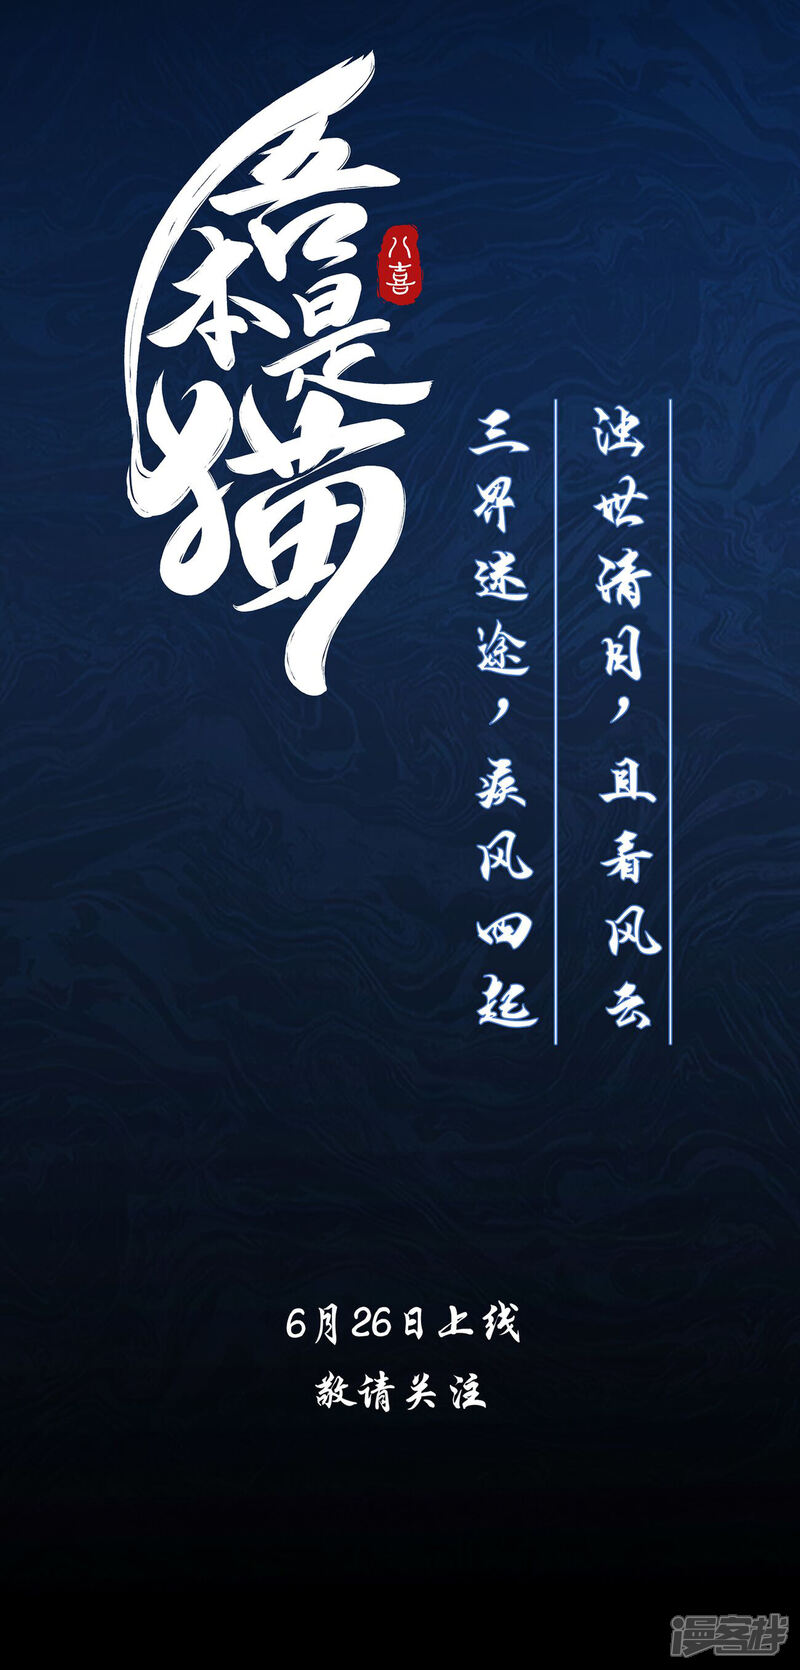 吾本是猫
八喜
浊世清目，且看风云
三界迷途，疾风四起
6月26日上线
敬请关注
漫客栈